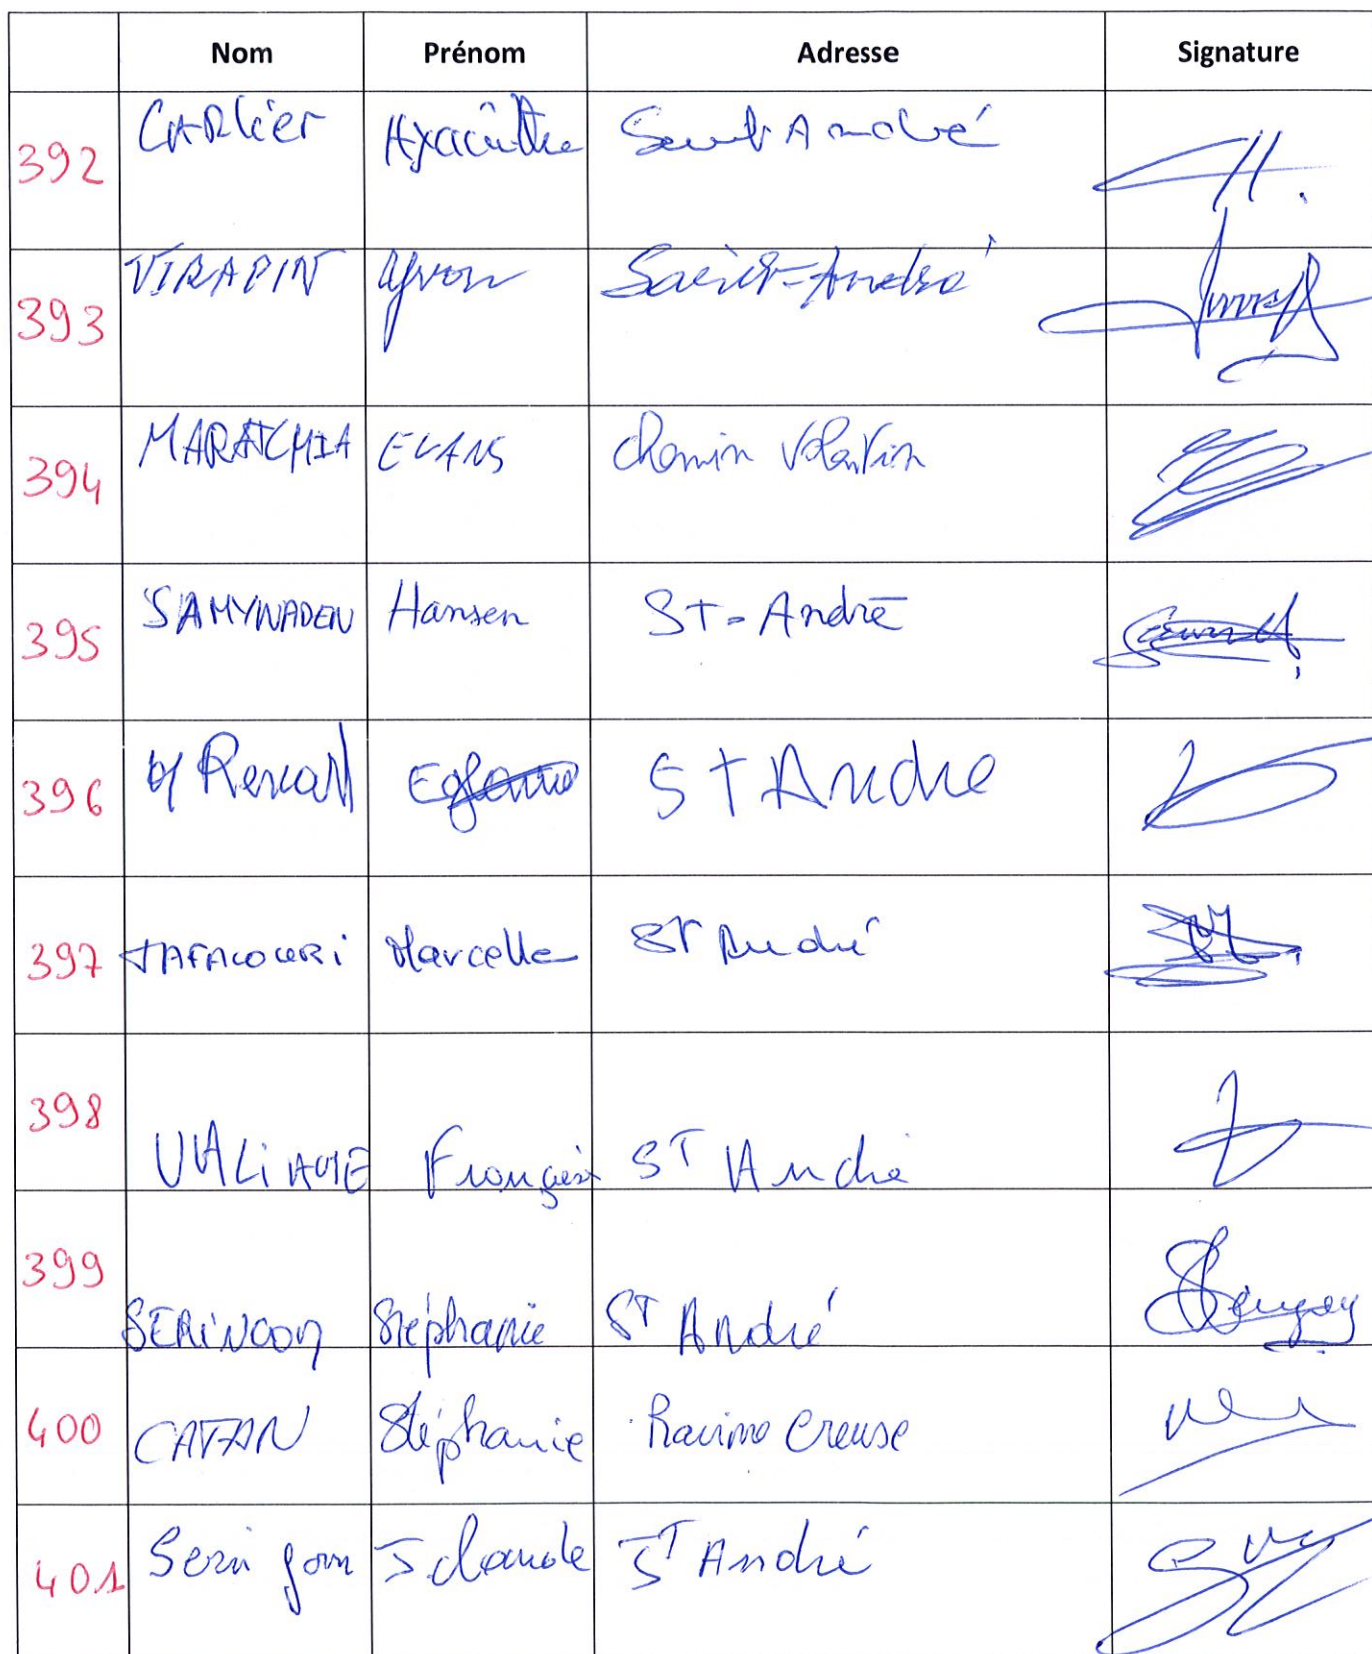 Nom Prénom Adresse Signature
392 CARlier Hyacinthe Saint André
393 VIRAPIN Yvon Saint-André
394 MARATCHIA EVANS chemin Valentin
395 SAMYNADEN Hansen ST-André
396 ST Andre
397 Marcelle ST André
398 ST André
399 Stéphanie ST André
400 CATAN Stéphanie Ravine Creuse
401 J claude ST André